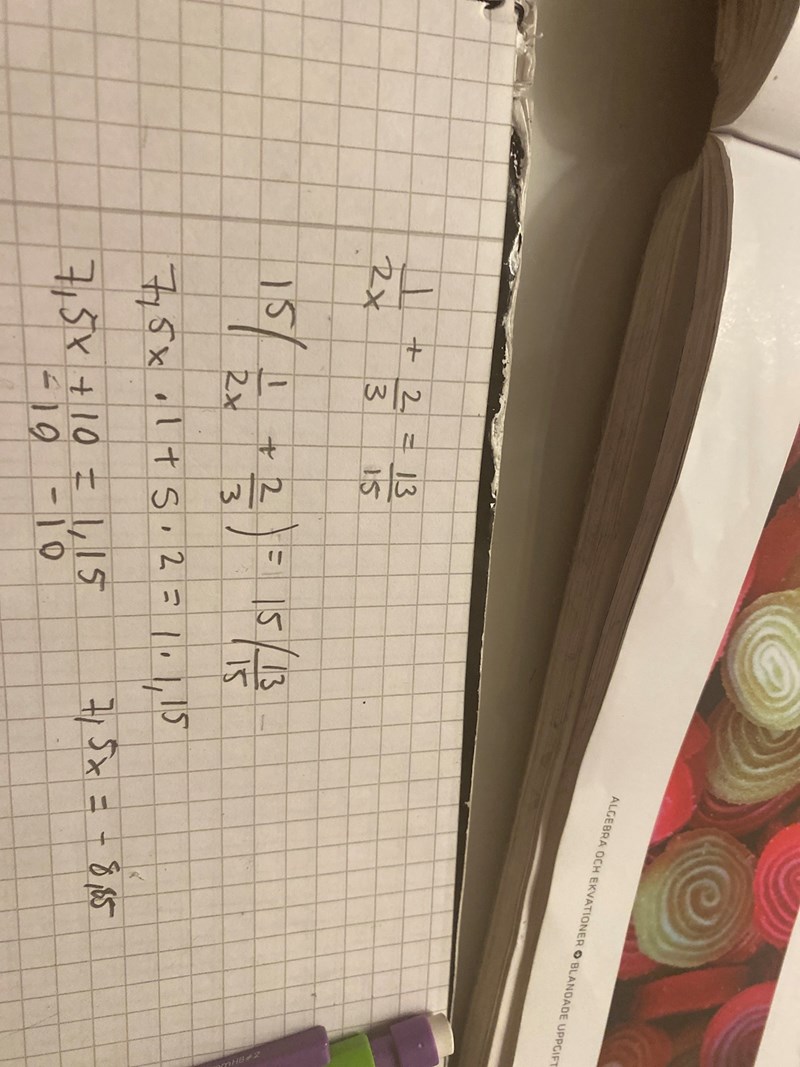 1/2x + 2/3 = 13/15
15(1/2x + 2/3) = 15(13/15
7,5x · 1 + 5 · 2 = 1 · 1,15
7,5x + 10 = 1,15 7,5x = - 8,85
= 10 - 10
ALGEBRA OCH EKVATIONER ✪ BLANDADE UPPGIFT